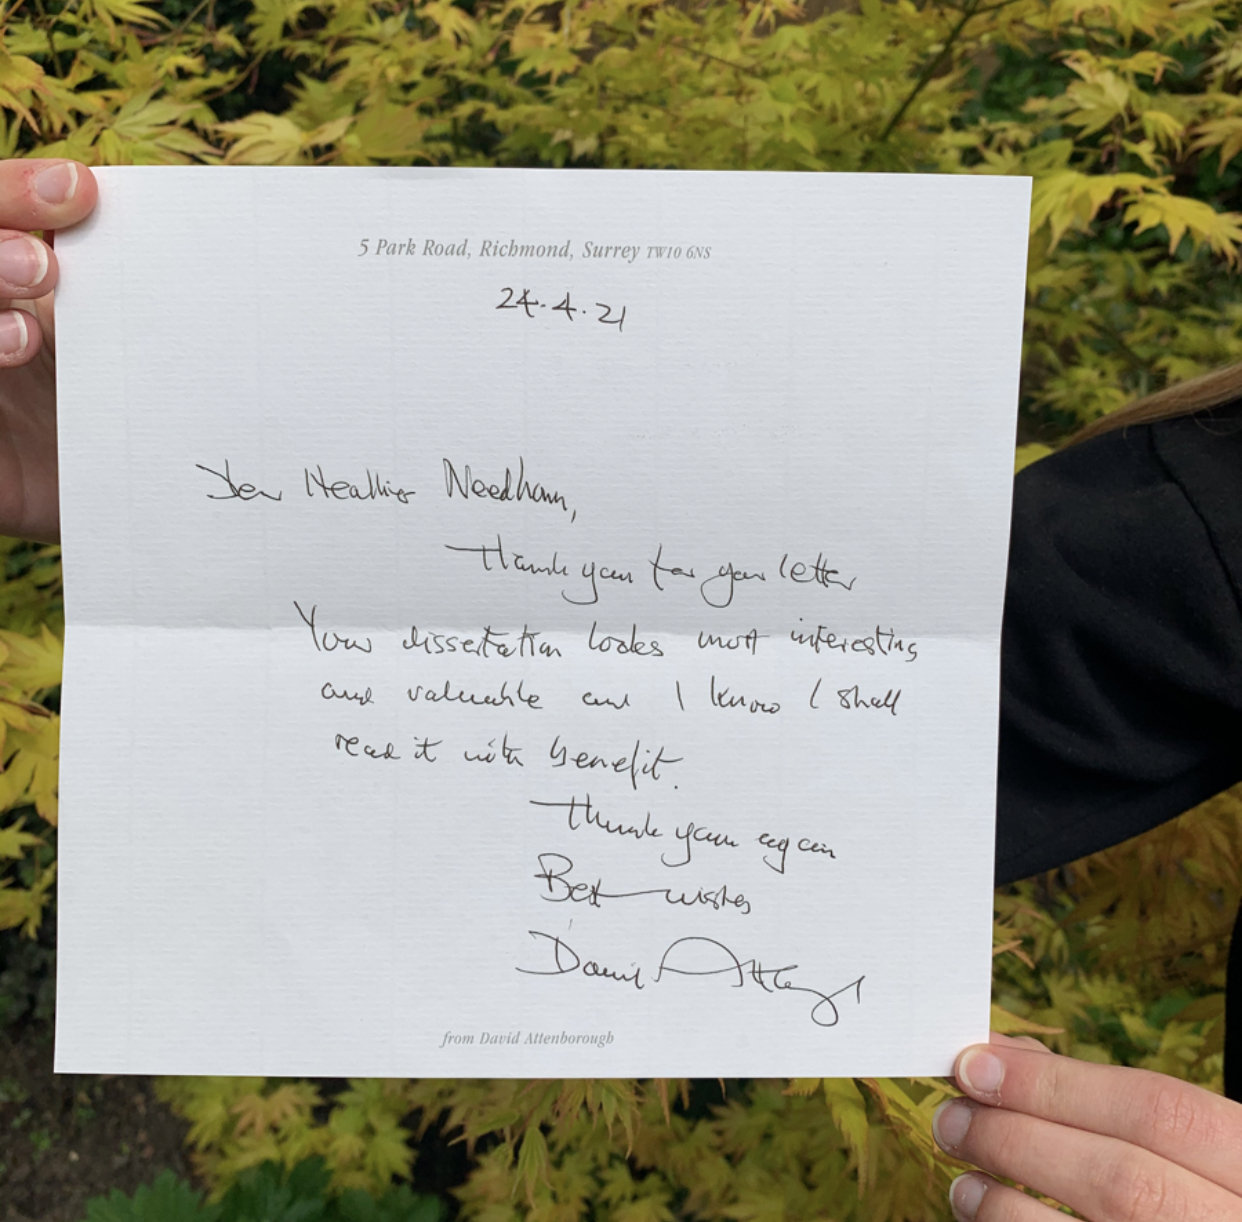 5 Park Road, Richmond, Surrey TW10 6NS
24.4.21
Dear Heather Needham,
Thank you for your letter
Your dissertation looks most interesting
and valuable and I know I shall
read it with benefit.
Thank you again
Best wishes
David Attenborough
from David Attenborough